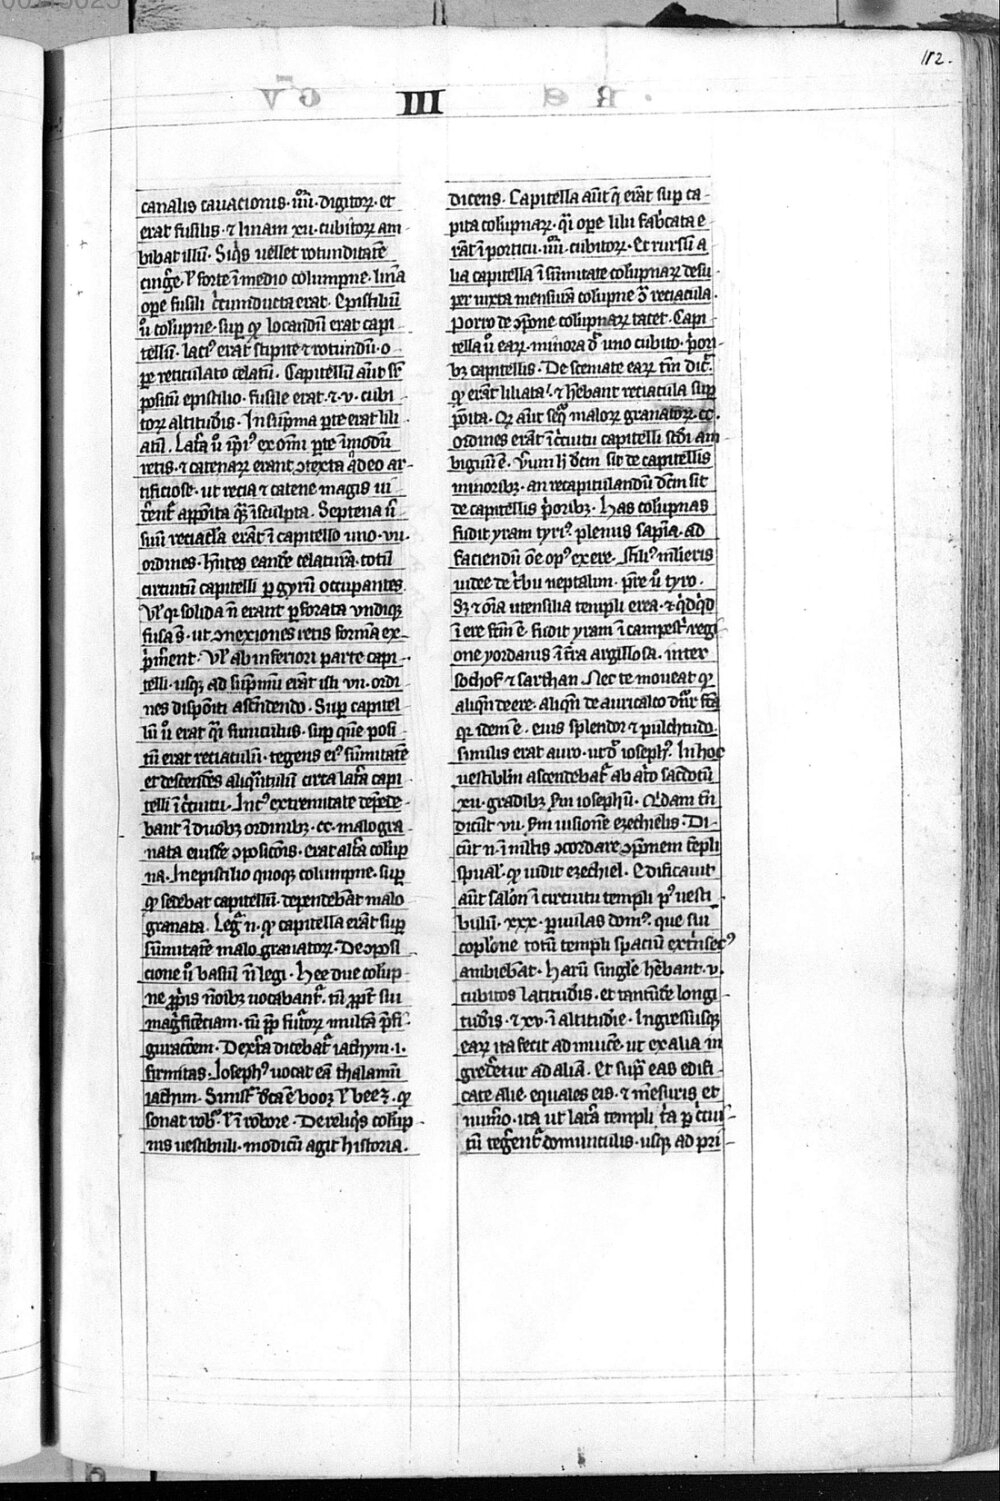 112.
III
canalis cauacionis· iiiior· digitorꝝ· et
erat fusilis· ⁊ lineam xii· cubitorꝝ am
bibat illū· Siq̄s uellet rotunditatē
cing̃e· ł forte ī medio columpne· linea
ope fusili c̄cunducta erat· Epistiliū
ů colūpne· sup qͦ locandū erat capi
tellū· lacꝰ erat stipite ⁊ rotundū· o
pe reticulato celatū· Capitellū aūt sr̄
positū epistilio· fusile erat· ⁊ v· cubi
torꝝ altitudīs· In sup̄ma pte erat lili
atū· Latꝰa ů ip̄iꝰ ex om̄i pte ī modū
retis· ⁊ catenarꝝ erant ꝯtexta q̄deo ar
tificiose· ut recia ⁊ catene magis ui
dēnt̄ app̄oita qͣꝫ īsculpta· Septena ů
sūm reciacl̄a erāt ī capitello uno· vii·
ordines· hn̄tes eandē celaturā· totū
circuitū capitelli p gyrū occupantes
Vl̄ qꝛ solida n̄ erant pforata undiqꝫ
fusa s̄· ut ꝯnexiones retis formā ex
p̄m̄ent· Vl̄ ab inferiori parte capi
telli· usqꝫ ad sup̄mū erāt isti vii· ordi
nes disp̄oiti ascēndendo· Sup capitel
lū ů erat qͣi funiculus· sup quē posi
tū erat reciaculū· tegens eiꝰ sūmitatē
et descendēs aliqͣntulū circa latꝰa capi
telli ī c̄cuitu· In cꝰ extremitate dep̄ede
bant ī duobꝫ ordinibꝫ· cc· malogra
nata eiusdē ꝯposicōis· erat alt̄a colūp
na· In epistilio quoqꝫ columpne· sup
qͦ sedebat capitellū· dependebāt malo
granata· Legͣ n· qͦ capitella erāt sup
sūmitatē malogranatorꝝ· De ꝯposi
cione ů basiū n̄ legi· Hee due colūp
ne p̄p̄is noībꝫ uocabant̄· tū p̄pt̄ sui
magᷓficēciam· tū p̄p̄ futꝰorꝝ multā p̄fi
guracōem· Dext̄a dicebat̄ iachym· i·
firmitas· Josephꝰ uocat eā thalamū
iachim· Sinistͣ d̄cta ē booꝫ ł beeꝫ· qͦ
sonat robꝰ· ł ī robore· De reliq̄s colūp
nis uestibuli· modicū agit historia·
dicens· Capitella aūt q̄ erāt sup ca
pita colūpnarꝝ· qͣi ope lilii fab̄cata e
rāt ī porticu· iiiior· cubitorꝝ· Et rursū a
lia capitella ī sūmitate colūpnarꝝ desu
per iuxta mensurā colūpne ꝯͣ reciacula·
Porro de ꝯpōne colūpnarꝝ tacet· Capi
tella ů earꝝ· minora dꝰ uno cubito· p̄ori
bꝫ capitellis· De scemate earꝝ tm̄ dicͥ·
qͦ erāt liliata· ⁊ hēbant reciacula sup
p̄oita· Qꝛ aūt seqͥ malorꝝ granatorꝝ· cc·
ordines erāt ī c̄cuitu capitelli scdi am
biguū ē· Vtrum h̄ dcm̄ sit de capitellis
minoribꝫ· an recapitulandū dcm̄ sit
de capitellis p̄oribꝫ· Has colūpnas
fudit yram tyriꝰ· plenus sapīa· ad
faciendū oē opꝰ ex ere· Filiꝰ mlieris
uidee de t̄bu neptalim· pr̄e ů tyro·
Sꝫ ⁊ oīa utensilia templi erea· ⁊ qͥdqͥd
ī ere fcm̄ ē· fudit yram ī campestͥ regi
one yordanis ī tr̄a argillosa· inter
sochot ⁊ sarthan· Nec te moueat qͦ
aliqn̄ de ere· aliqn̄ de auricalco dr̄ fcā
qꝛ idem ē· eiꝰ splendor ⁊ pulchritudo·
similis erat auro· ut dꝰ iosephꝰ· In hoc
uestiblm̄ ascendebat̄ ab atͥo sacdotū
xii· gradibꝫ sm̄ iosephū· Qͥdam tn̄
dicūt vii· sm̄ uisionē ezechielis· Di
cūt n· ī multis ꝯcordare ꝯpōnem tēpli
spual̄· qͦ uidit ezechiel· Edificauit
aūt salōn ī circuitu templi pꝰ uesti
bulū· xxx· paruulas domꝰ· que sui
coplōne totū templi spaciū extⁱnsecꝰ
ambiebāt· Harū singl̄e hēbant· v·
cubitos latitudīs· et tantūdē longi
tudīs· ⁊ xv· ī altitudīe· Ingressusqꝫ
earꝝ ita fecit ad inuicē· ut ex alia in
gredēetur ad aliā· Et sup̄ eas edifi
cate alie· equales eis· ⁊ mēsuris et
num̄o· ita ut latꝰa templi t̄a p c̄cui
tū teg̃ent̄ domunculis· usqꝫ ad pri